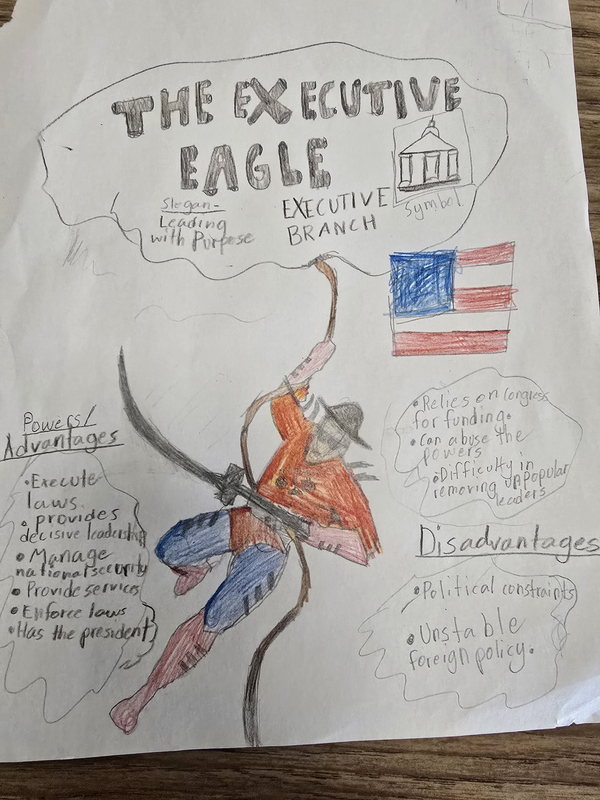 THE EXECUTIVE
EAGLE
Slogan-
Leading
with Purpose
EXECUTIVE
BRANCH
Symbol
Powers/
Advantages
• Execute
laws.
• provides
decisive leadership
• Manage
national security
• Provide services
• Enforce laws
• Has the president
• Relies on Congress
for funding.
• Can abuse the
powers
• Difficulty in
removing unpopular
leaders
Disadvantages
• Political constraints
• Unstable
foreign policy.